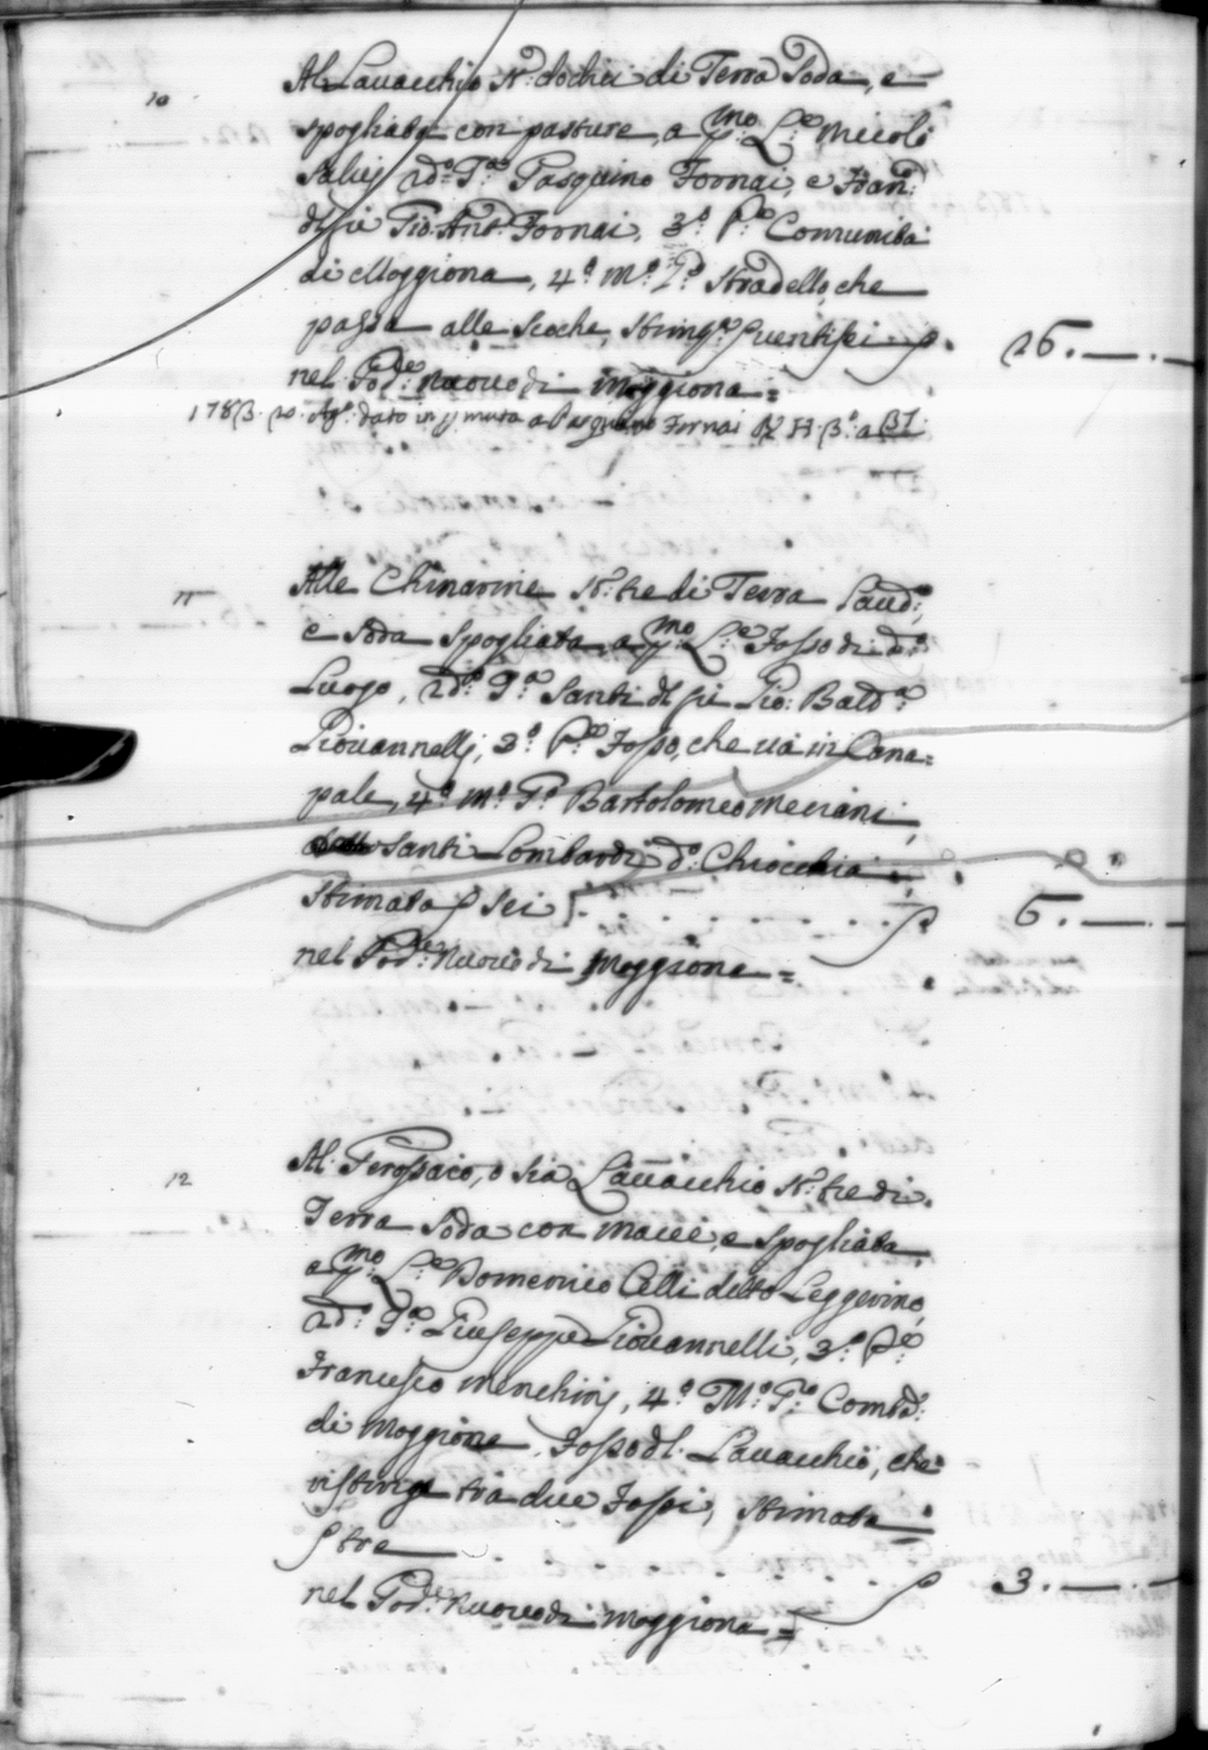 10
Al Lauacchio St: dodici di Terra Soda, e
spogliata con pasture, a p:mo L:o Niccolò
Saluj 2do: T:o Pasquino Fornai, e Fran:
dl fù Gio: Ant:o Fornai, 3:o P:o Comunità
di Moggiona, 4:o M:o P:o Stradello, che
passa alle Seche, Stim: ventisei 26.—.—
nel Pod:e Nuouo di Moggiona =
1783. 20. Ag:o dato in p muta a Pasquino Fornai H. 3:o a 31.
11
Alle Chinarine St: tre di Terra Lau:
e Soda Spogliata, a p:mo L:o Fosso di d:o
Luogo, 2do: T:o Santi dl fù Gio: Batt:a
Giouannelli, 3:o P:o Fosso, che uà in Cana=
pale, 4:o M:o T:o Bartolomeo Meciani,
Santi Lombardi d:o Chiocchia
Stimata sei 6.—.—
nel Pod:e Nuouo di Moggiona =
12
Al o sia Lauacchio St: tre di
Terra Soda con Macie, e Spogliata,
a p:mo L:o Domenico Celli detto Leggerino,
2do: T:o Giuseppe Giouannelli, 3:o P:o
Francesco Menchinj, 4:o M:o T:o Com:tà
di Moggiona, Fosso dl: Lauacchio, che
ristringe trà due Fossi, Stimata
tre 3.—.—
nel Pod:e Nuouo di Moggiona =